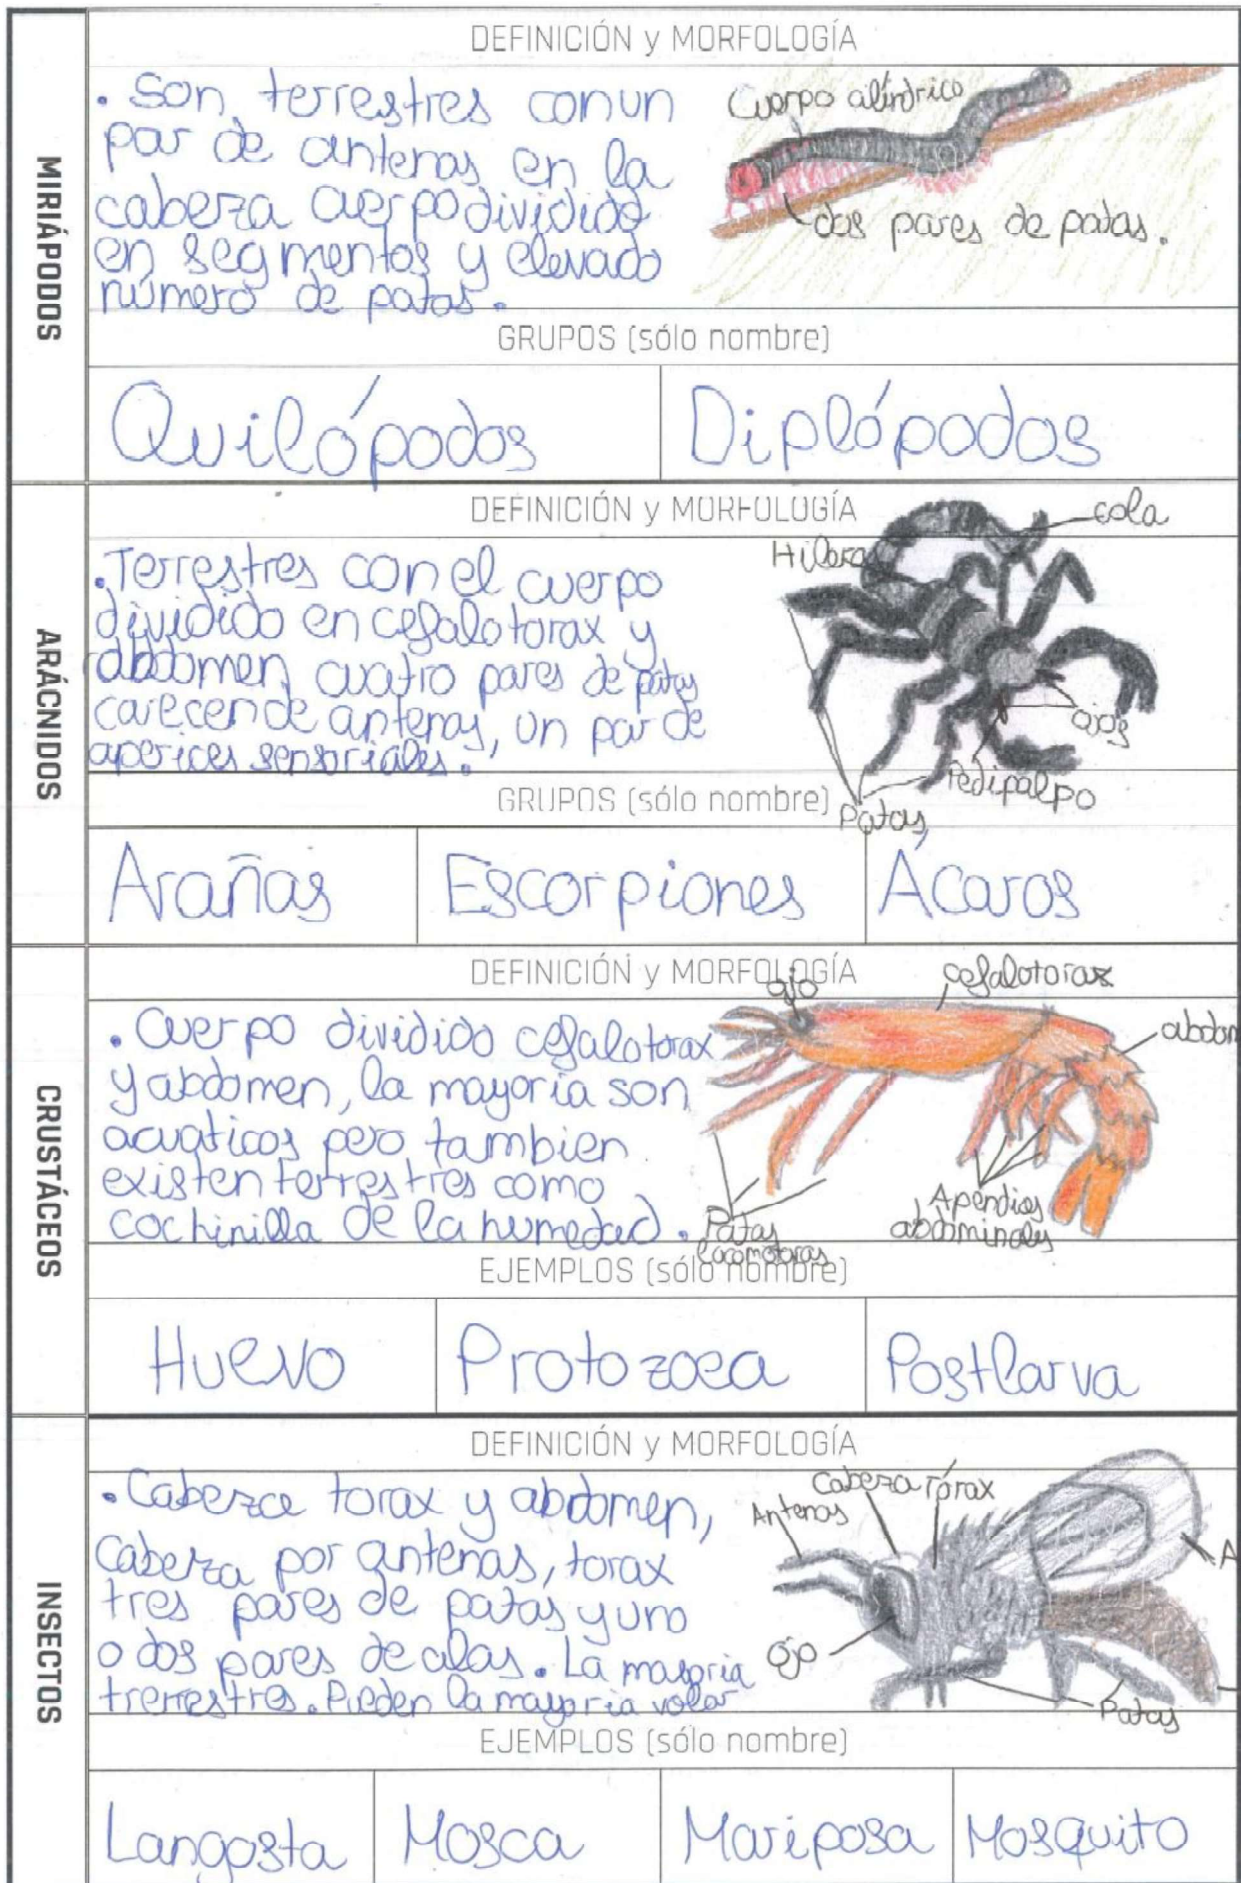 MIRIÁPODOS
DEFINICIÓN y MORFOLOGÍA
. Son terrestres con un
par de antenas en la
cabeza cuerpo dividido
en segmentos y elevado
número de patas.
Cuerpo cilíndrico
dos pares de patas.
GRUPOS (sólo nombre)
Quilópodos
Diplópodos
ARÁCNIDOS
DEFINICIÓN y MORFOLOGÍA
. Terrestres con el cuerpo
dividido en cefalotorax y
abdomen cuatro pares de patas
carecen de antenas, un par de
sensoriales.
cola
Hilera
ojos
Pedipalpo
Patas
GRUPOS (sólo nombre)
Arañas
Escorpiones
Ácaros
CRUSTÁCEOS
DEFINICIÓN y MORFOLOGÍA
. Cuerpo dividido cefalotorax
y abdomen, la mayoria son
acuaticos pero tambien
existen terrestres como
cochinilla de la humedad.
ojo
cefalotorax
abdom
Patas
locomotoras
Apendices
abdominales
EJEMPLOS (sólo nombre)
Huevo
Protozoea
Postlarva
INSECTOS
DEFINICIÓN y MORFOLOGÍA
. Cabeza torax y abdomen,
cabeza por antenas, torax
tres pares de patas y uno
o dos pares de alas. La mayoria
trerrestres. Pueden la mayoria volar
Antenas
Cabeza
Tórax
A
Ojo
Patas
EJEMPLOS (sólo nombre)
Langosta
Mosca
Mariposa
Mosquito